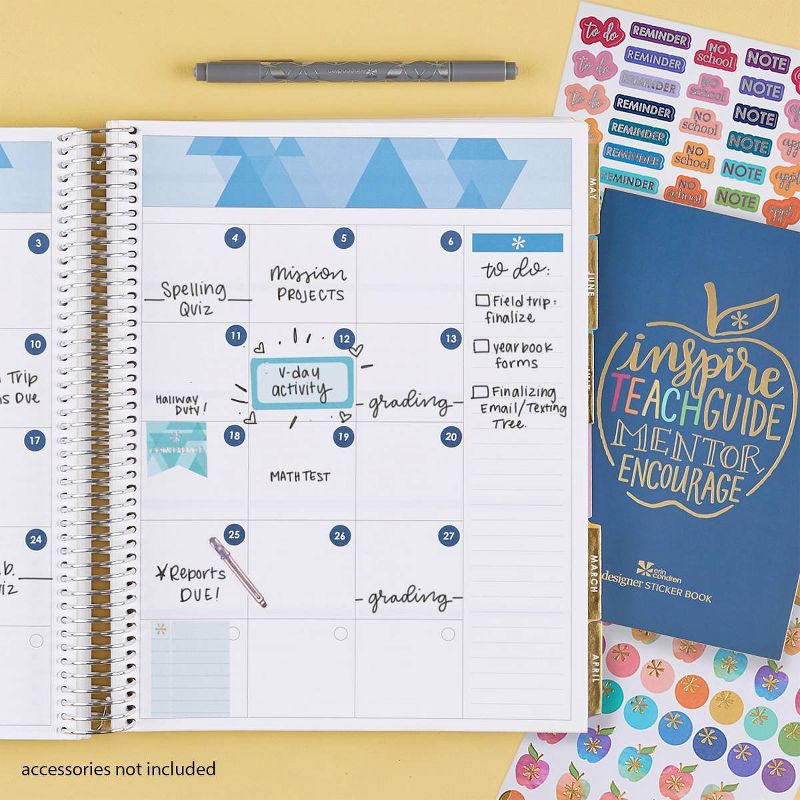 to do
REMINDER
NO school
NOTE
to do
REMINDER
NO school
NOTE
to do
REMINDER
NO school
NOTE
REMINDER
NO school
NOTE
REMINDER
NO school
NOTE
REMINDER
NO school
NOTE
REMINDER
MAY
JUNE
MARCH
APRIL
3
4
5
6
Spelling
Quiz
Mission
PROJECTS
to do:
Field trip:
finalize
yearbook
forms
Finalizing
Email/Texting
Tree
10
11
12
13
Trip
Due
Hallway
Duty!
V-day
activity
grading
17
18
19
20
MATH TEST
24
25
26
27
Reports
DUE!
grading
inspire
TEACH GUIDE
MENTOR
ENCOURAGE
erin condren
designer STICKER BOOK
accessories not included